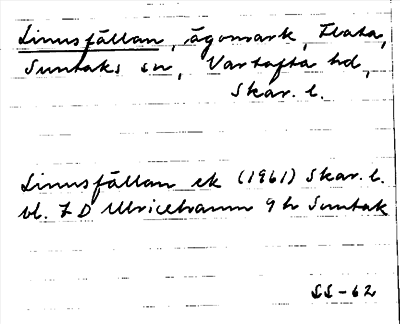 Linusfällan, ägomark, Flata,
Suntaks sn, Vartofta hd,
Skar. l.
Linusfällan ek (1961) Skar. l.
bl. 7 D Ulricehamn 9 h Suntak
SS-62